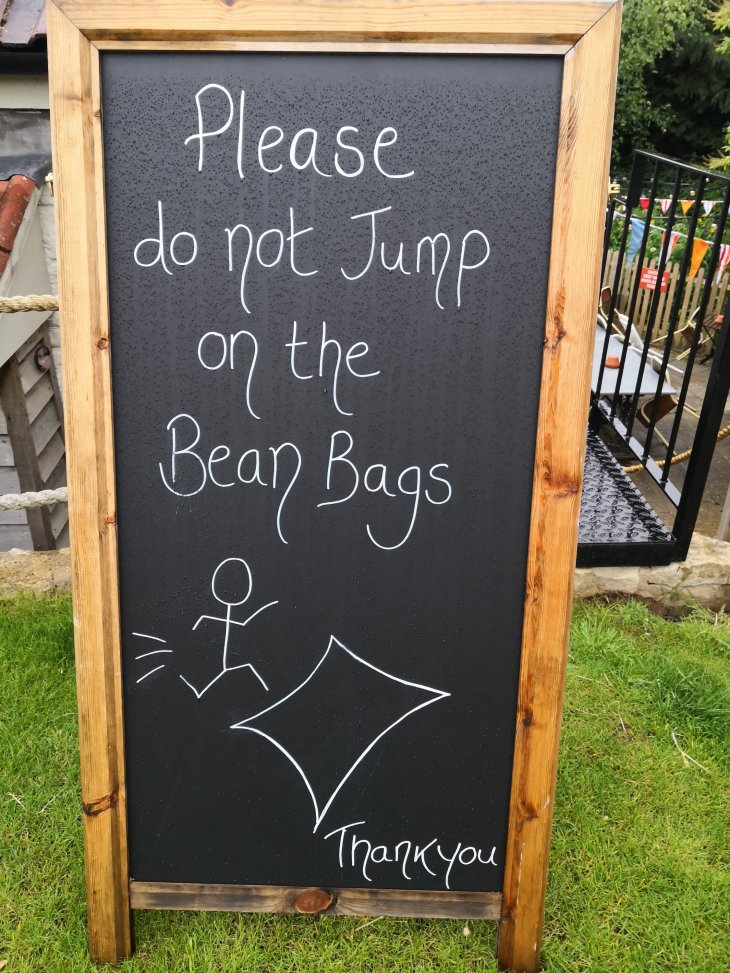 Please
do not Jump
on the
Bean Bags
Thankyou